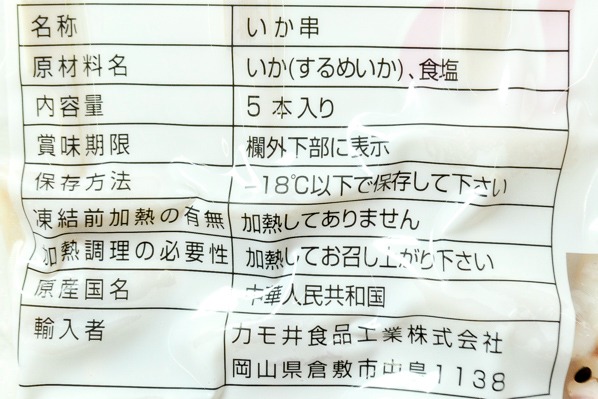 名称 いか串
原材料名 いか(するめいか)、食塩
内容量 5本入り
賞味期限 欄外下部に表示
保存方法 -18℃以下で保存して下さい
凍結前加熱の有無 加熱してありません
加熱調理の必要性 加熱してお召し上がり下さい
原産国名 中華人民共和国
輸入者 カモ井食品工業株式会社
岡山県倉敷市中島1138